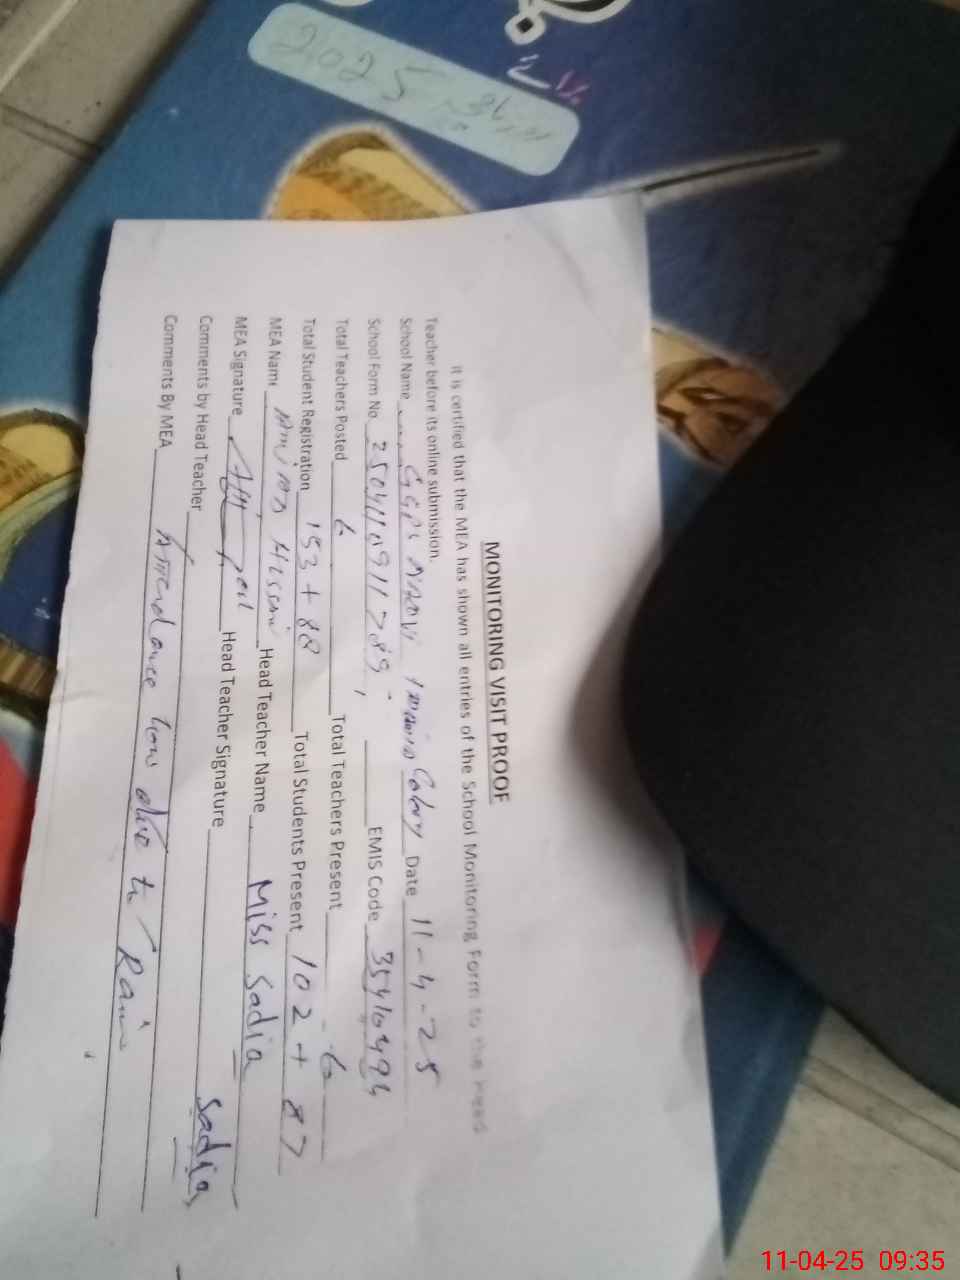 2025
برائے
MONITORING VISIT PROOF
it is certified that the MEA has shown all entries of the School Monitoring Form to the Head
Teacher before its online submission.
School Name GGPS Colony Date 11-4-25
School Form No EMIS Code
Total Teachers Posted 6 Total Teachers Present 6
Total Student Registration 153 + 88 Total Students Present 102 + 87
MEA Name Head Teacher Name Miss Sadia
MEA Signature Head Teacher Signature Sadia
Comments by Head Teacher
Comments By MEA Attendance low due to Rain
11-04-25 09:35